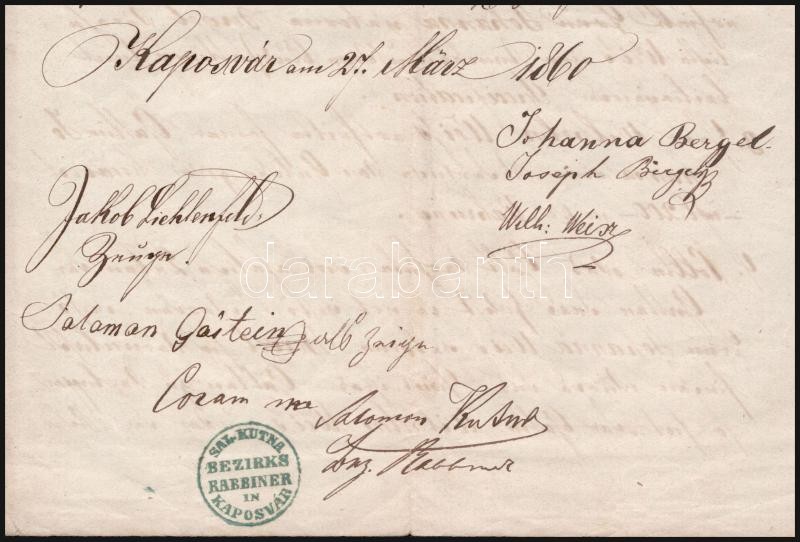 Kaposvár am 27. März 1860
Johanna Bergel
Joseph Bergel
Wilh: Weisz
Jakob Lichtenfeld
Zeuge
Salaman Gostein als Zeuge
Coram me
Salomon Kutna
Rabbiner
SAL. KUTNA
BEZIRKS
RABBINER
IN
KAPOSVÁR
darabanth